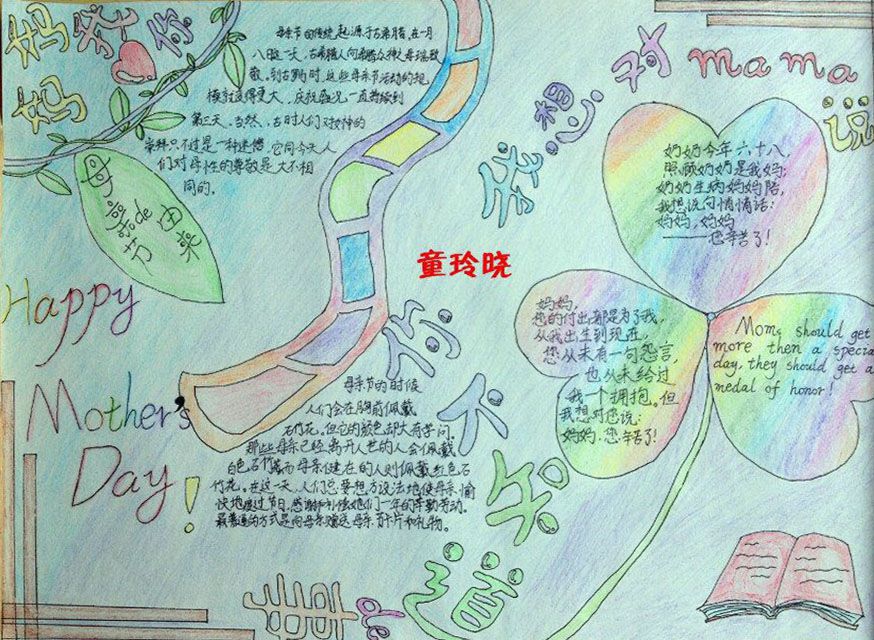 妈妈我你
母亲节de由来
母亲节的传统,起源于古希腊。在一月
八日这一天,古希腊人向希腊众神之母瑞亚致
敬。到古罗马时,这些母亲节活动的规
模就变得更大,庆祝盛况一直持续到
第三天。当然,古时人们对女神的
崇拜只不过是一种迷信,它同今天人
们对母性的尊敬是大不相
同的。
我想对mama说
奶奶今年六十八,
照顾奶奶是我妈;
奶奶生病妈妈陪,
我想说句悄悄话:
妈妈,妈妈
——您辛苦了!
童玲晓
妈妈,
您的付出都是为了我,
从我出生到现在,
您从未有一句怨言,
也从未给过
我一个拥抱。但
我想对您说:
妈妈,您辛苦了!
Mom, should get
more then a specia
day, they should get a
medal of honor!
Happy
Mother's
Day!
你不知道de事
母亲节的时候
人们会在胸前佩戴
石竹花。但它的颜色却大有学问。
那些母亲已经离开人世的人会佩戴
白色石竹花,而母亲健在的人则佩戴红色石
竹花。在这一天,人们总要想方设法地使母亲愉
快地度过节日,感谢和补偿她们一年的辛勤劳动。
最普通的方式是向母亲赠送母亲节卡片和礼物。